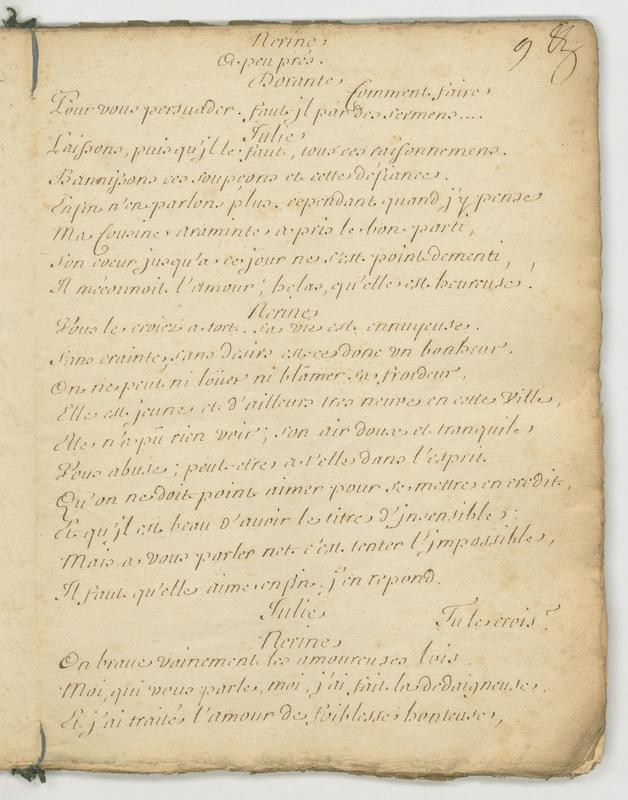 9
Nerine
A peu prés.
Dorante
Comment faire
Pour vous persuader. faut jl par des sermens....
Julie
Laissons, puis qu'jl le faut, tous ces raisonnemens.
Bannissons ces soupçons et cette défiance.
Enfin n'en parlons plus. cependant quand j'y pense
Ma Cousine araminte a pris le bon parti,
Son coeur jusqu'a ce jour ne s'est point dementi,
Il méconnoit l'amour; helas, qu'elle est heureuse!
Nerine
Vous le croiez a tort. sa vie est ennuyeuse.
Sans crainte, sans desirs est ce donc un bonheur.
On ne peut ni loüer ni blâmer sa froideur,
Elle est jeune et d'ailleurs tres neuve en cette ville,
Elle n'a pû rien voir; son air doux et tranquile
Vous abuse; peut etre a t'elle dans l'esprit
Qu'on ne doit point aimer pour se mettre en credit,
Et qu'jl est beau d'avoir le titre d'jnsensible;
Mais a vous parler net c'est tenter l'jmpossible,
Il faut qu'elle aime enfin, j'en repond.
Julie
Tu le crois?
Nerine
On brave vainement les amoureuses lois.
Moi, qui vous parle, moi, j'ai fait la dedaigneuse,
Et j'ai traité l'amour de foiblesse honteuse,